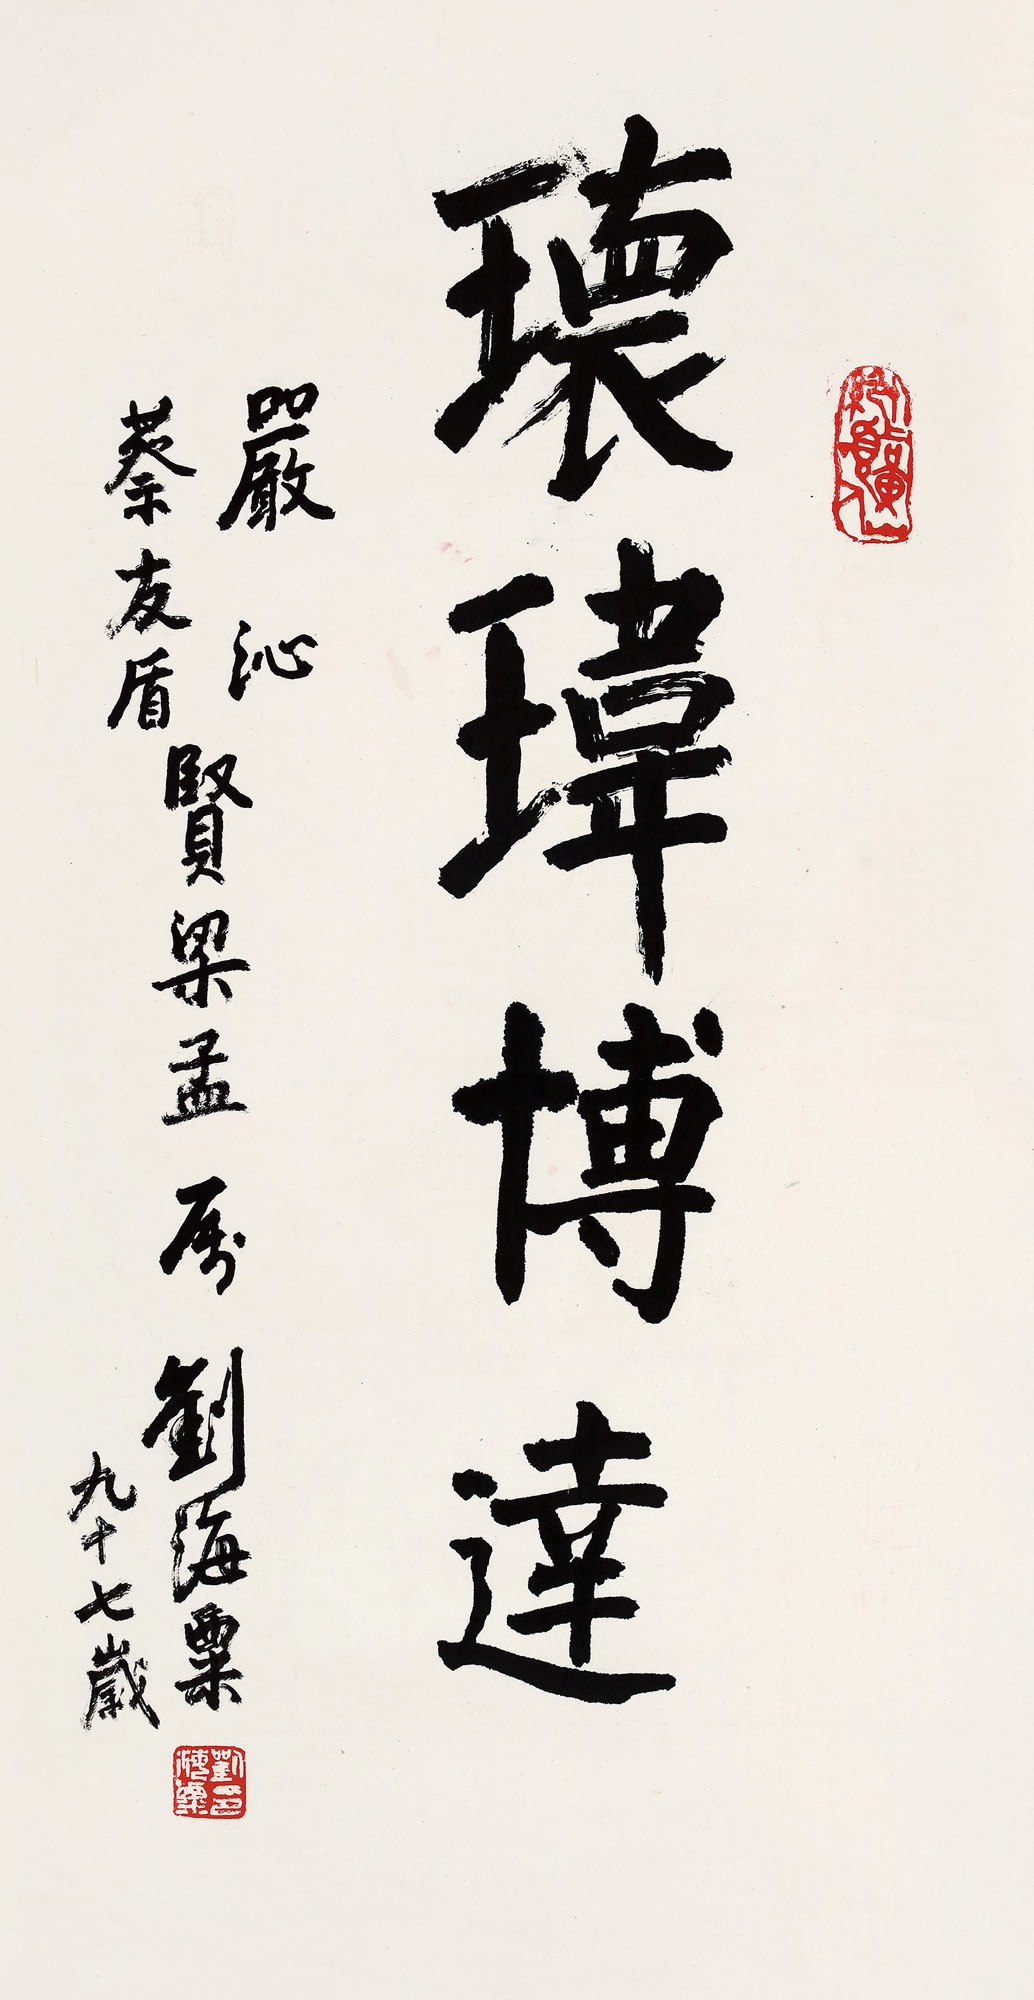 瓌瑋博達
嚴沁
蔡友盾
賢梁孟 属 劉海粟
九十七歲
劉印海粟